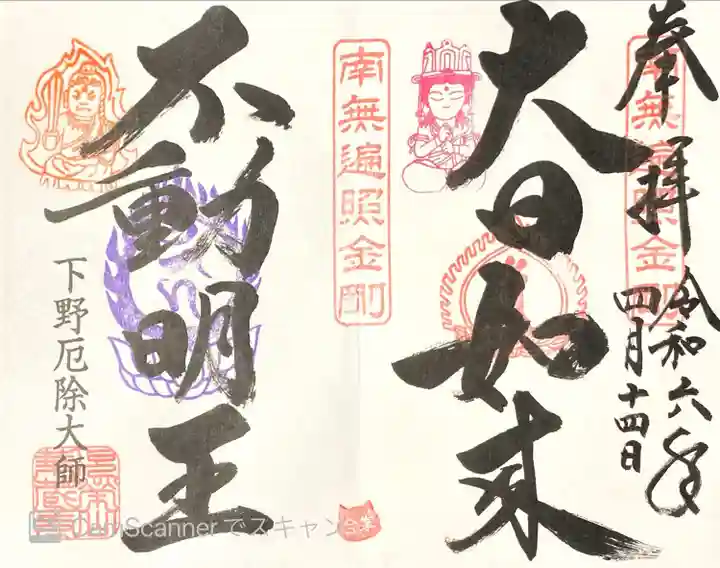 奉拝
令和六年
四月十四日
南無遍照金剛
大日如来
南無遍照金剛
不動明王
下野厄除大師
CamScannerでスキャン